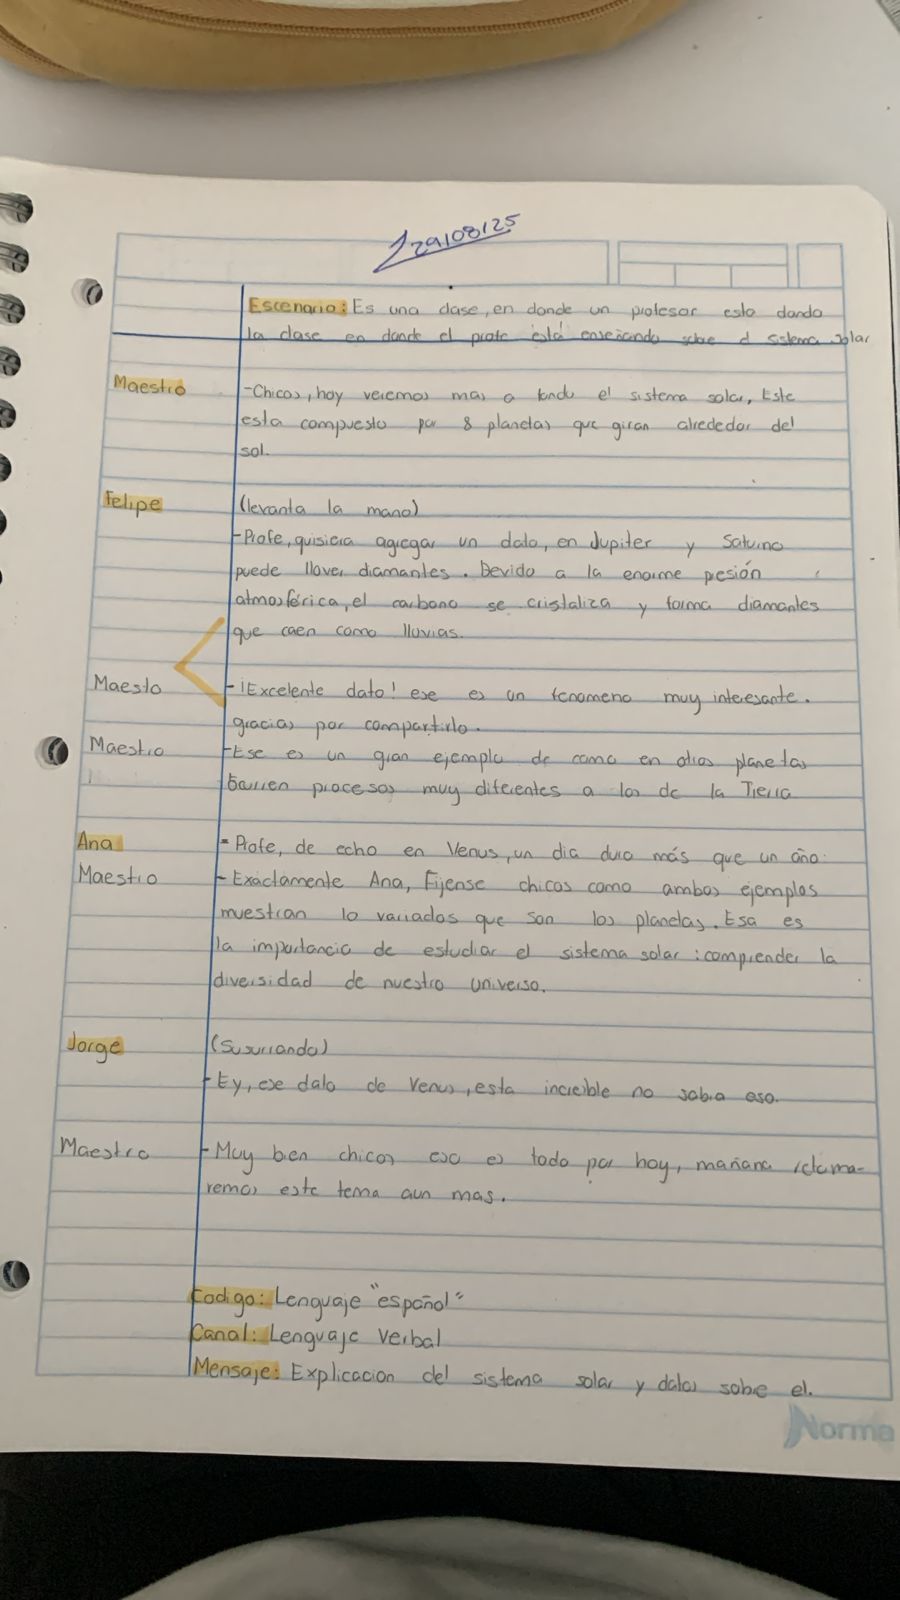 29/08/25
Escenario: Es una clase, en donde un profesor esta dando
la clase en donde el profe está enseñando sobre el sistema solar
Maestro -Chicos, hoy veremos mas a fondo el sistema solar, Este
esta compuesto por 8 planetas que giran alrededor del
sol.
Felipe (levanta la mano)
-Profe, quisiera agregar un dato, en Jupiter y Saturno
puede llover diamantes. Devido a la enorme presión
atmosférica, el carbono se cristaliza y forma diamantes
que caen como lluvias.
Maesto -¡Excelente dato! ese es un fenomeno muy interesante.
gracias por compartirlo.
Maestro -Ese es un gran ejemplo de como en otros planetas
ocurren procesos muy diferentes a los de la Tierra
Ana - Profe, de echo en Venus, un dia dura más que un año.
Maestro - Exactamente Ana, Fijense chicos como ambos ejemplos
muestran lo variados que son los planetas. Esa es
la importancia de estudiar el sistema solar: comprender la
diversidad de nuestro universo.
Jorge (Susurrando)
-Ey, ese dato de Venus, esta increible no sabia eso.
Maestro - Muy bien chicos eso es todo por hoy, mañana retoma-
remos este tema aun mas.
Codigo: Lenguaje "español"
Canal: Lenguaje Verbal
Mensaje: Explicacion del sistema solar y datos sobre el.
Norma